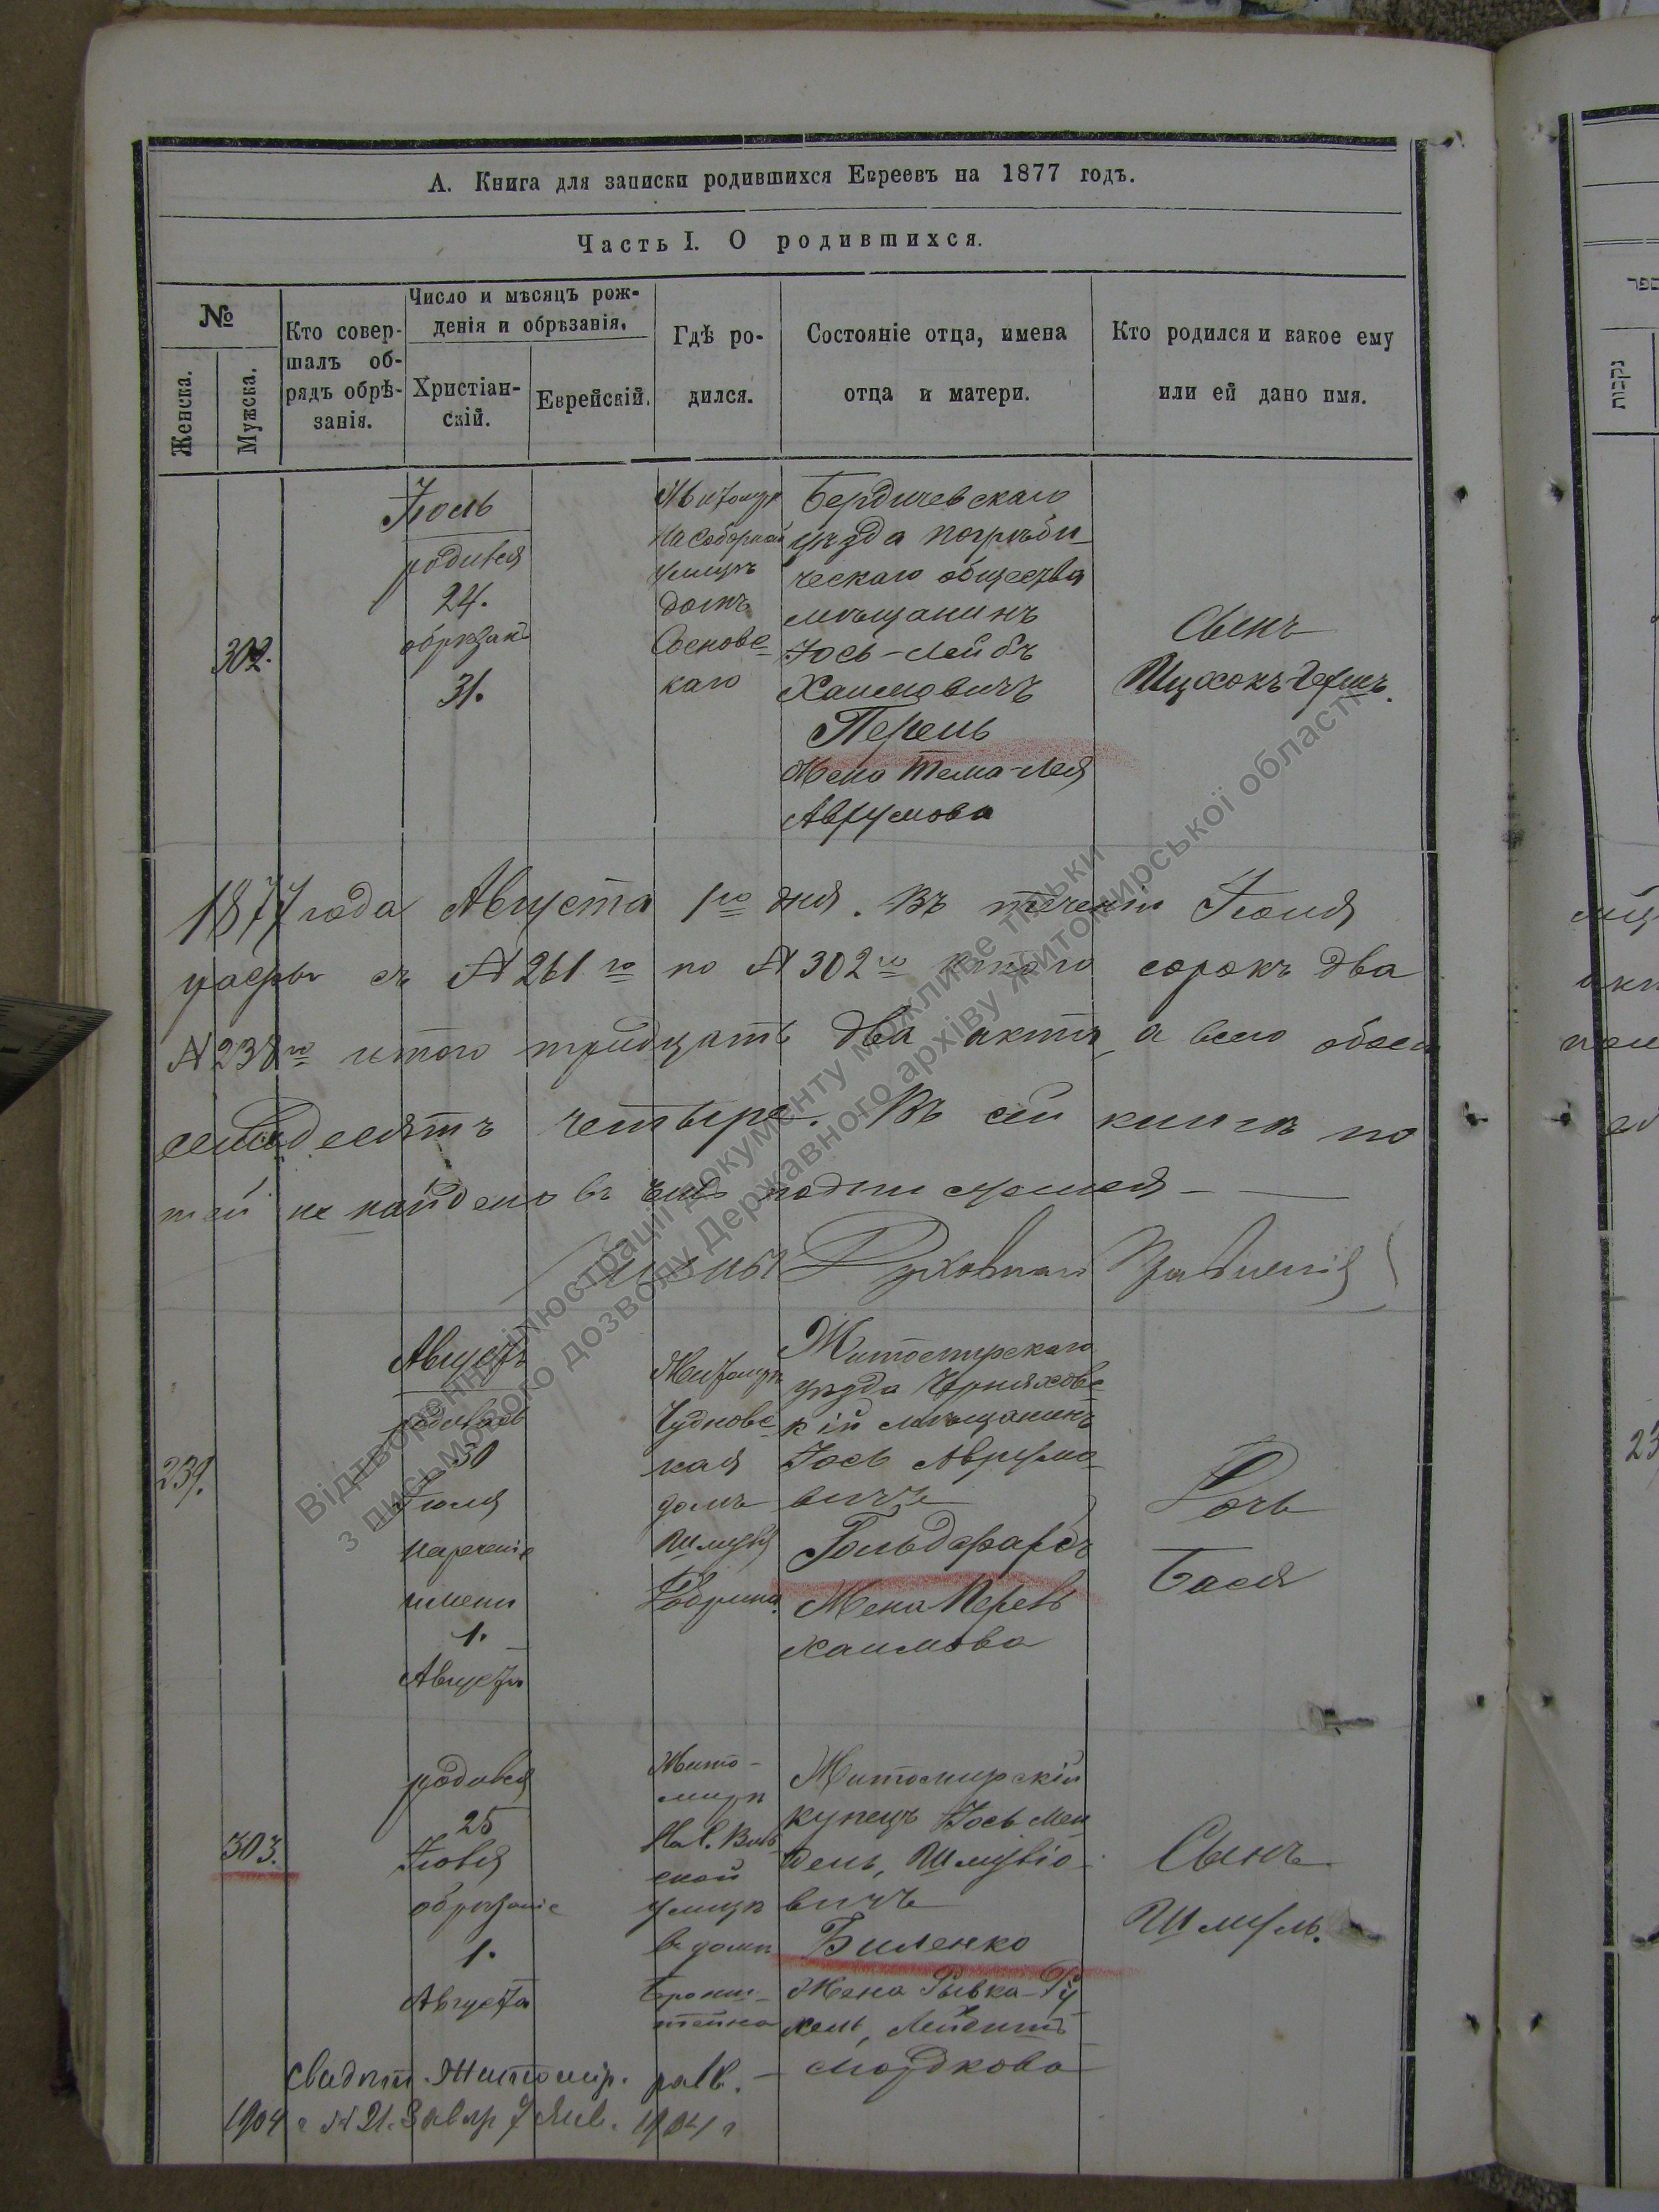 А. Книга для записки родившихся Евреевъ на 1877 годъ.
Часть I. О родившихся.
№
Женска.
Мужска.
Кто совер-
шалъ об-
рядъ обрѣ-
занія.
Число и мѣсяцъ рож-
денія и обрѣзанія.
Христіан-
скій.
Еврейскій.
Гдѣ ро-
дился.
Состояніе отца, имена
отца и матери.
Кто родился и какое ему
или ей дано имя.
302.
Іюль
родився
24.
обрезанъ
31.
Житомирѣ
на Соборной
улицѣ
домъ
Соснове-
каго
Бердичевскаго
уѣзда погреби-
ческаго общества
мѣщанинъ
Іось-Лейбъ
Хаимовичъ
Перель
Жена Тема-Лея
Аврумова
Сынъ
Ицхокъ-Гершъ.
1877 года Августа 1го дня. Въ теченіи Іюля
съ №261го по №302го итого сорокъ два
№238го итого тридцать два акта, а всего обоего
семьдесятъ четыре. Въ сей книгѣ по
тей не найдено въ чемъ подписуемся
Члены Духовнаго Правленія
239.
Августъ
родилась
30
Іюля
нареченіе
имени
1.
Августа
Житомирѣ
Чуднове-
кая
домъ
Шмуля
Житомирскаго
уѣзда Черняхове-
кій мѣщанинъ
Іось Аврумо-
вичъ
Гольдфарбъ
Жена Перель
Хаимова
Дочь
Бася
303.
родився
25
Іюля
обрезаніе
1.
Августа
Жито-
мирѣ
на
ской
улицѣ
въ домѣ
Бронш-
тейна
Житомирскій
купецъ Іось Мен
дель, Шмуліо-
вичъ
Биленко
Жена Рывка-Ру
хель,
Мордкова
Сынъ
Шмуль.
Свидѣт. Житомір. рав.
1904 г № 21. 7 Янв. 1904 г
ספר
נקבות
Відтворення ілюстрації документу можливе тільки
з письмового дозволу Державного архіву Житомирської області